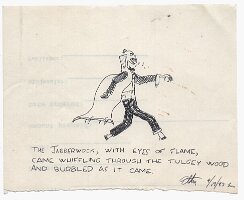 THE JABBERWOCK, WITH EYES OF FLAME,
CAME WHIFFLING THROUGH THE TULGEY WOOD
AND BURBLED AS IT CAME.